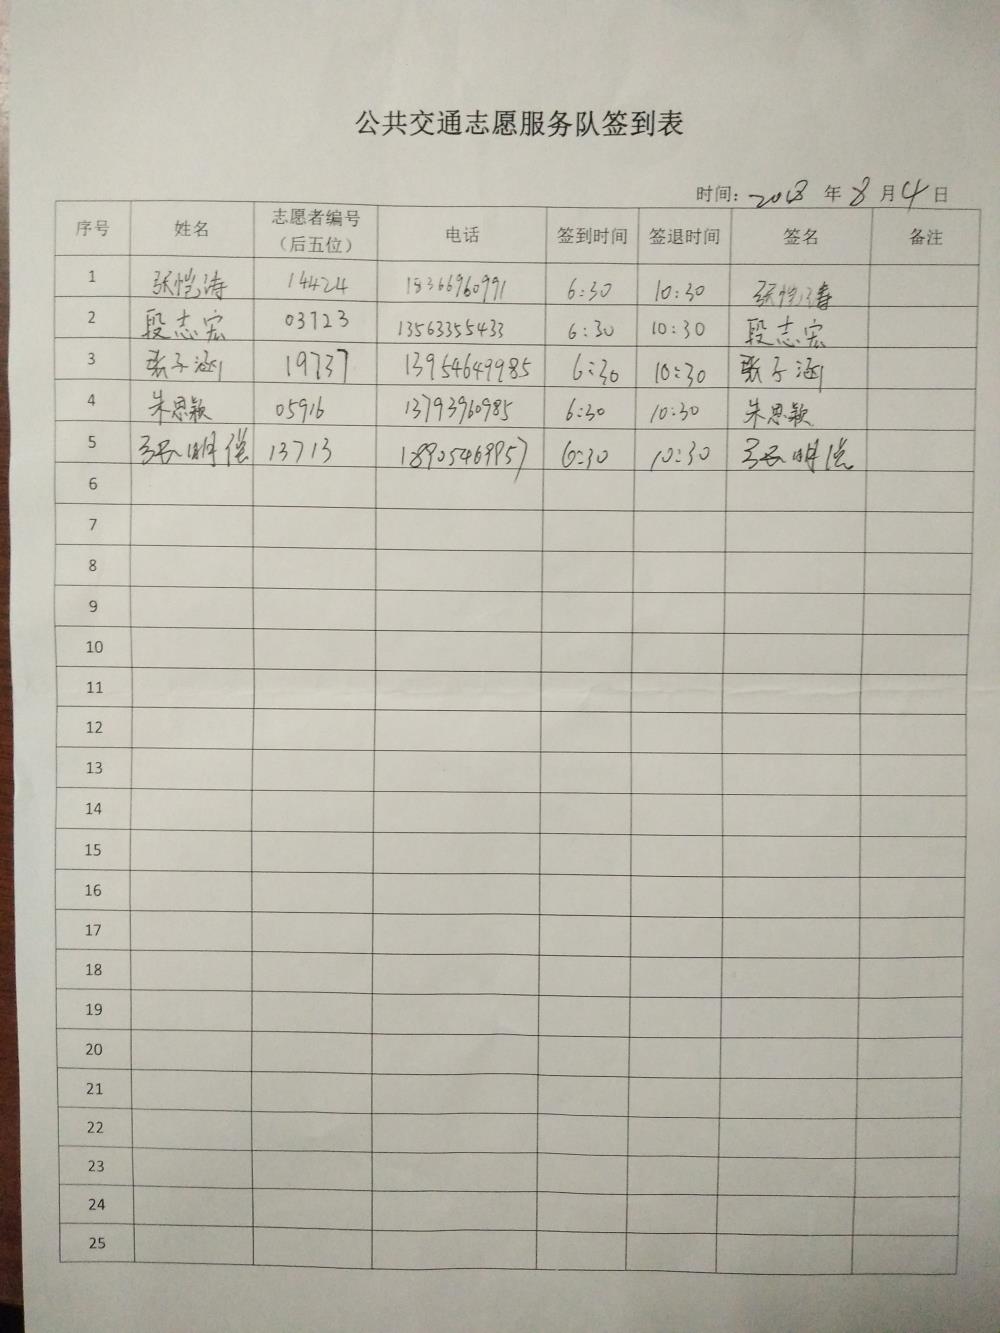 公共交通志愿服务队签到表
时间: 2018 年 8 月 4 日
序号 姓名 志愿者编号（后五位） 电话 签到时间 签退时间 签名 备注
1 张恺涛 14424 18366960991 6:30 10:30 张恺涛
2 段志宏 03723 13563355433 6:30 10:30 段志宏
3 张子涵 19737 13954649985 6:30 10:30 张子涵
4 朱思颖 05916 13793960985 6:30 10:30 朱思颖
5 张明偿 13713 18905469957 6:30 10:30 张明
6
7
8
9
10
11
12
13
14
15
16
17
18
19
20
21
22
23
24
25